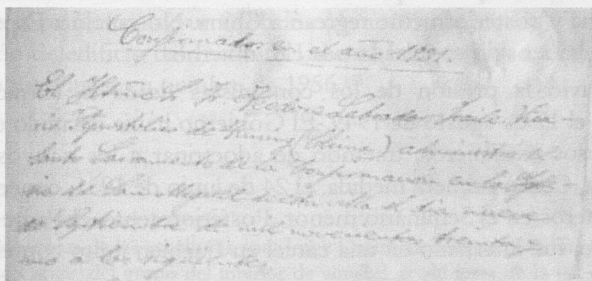 Confirmados en el año 1931.
El Iltmo. S. D. Teodoro Labrador Fraile, Vica-
rio Apostólico de Funing (China) administró el
Santo Sacramento de la Confirmación en la Igle-
sia de San Miguel de esta villa el día nueve
de Septiembre de mil novecientos treinta y
uno a los siguientes